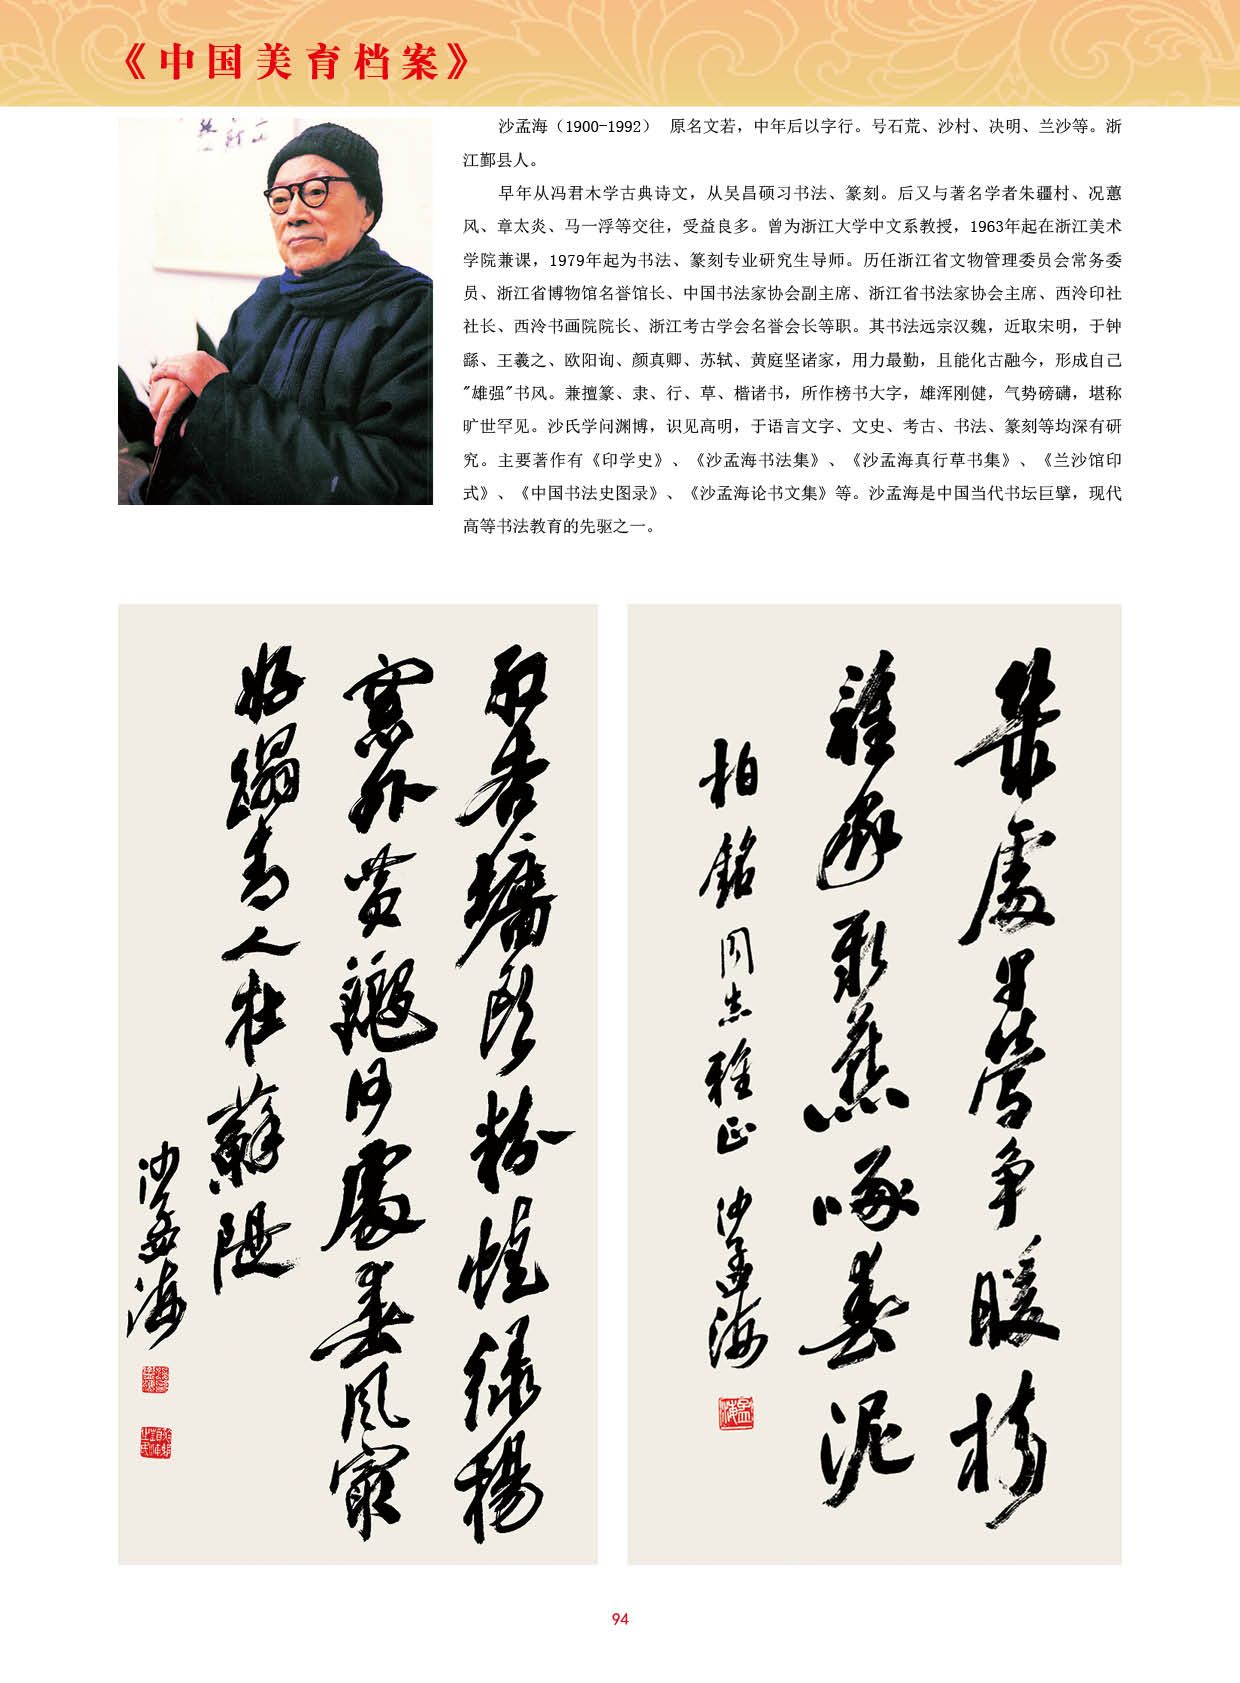 《中国美育档案》
沙孟海（1900-1992） 原名文若，中年后以字行。号石荒、沙村、决明、兰沙等。浙
江鄞县人。
早年从冯君木学古典诗文，从吴昌硕习书法、篆刻。后又与著名学者朱疆村、况蕙
风、章太炎、马一浮等交往，受益良多。曾为浙江大学中文系教授，1963年起在浙江美术
学院兼课，1979年起为书法、篆刻专业研究生导师。历任浙江省文物管理委员会常务委
员、浙江省博物馆名誉馆长、中国书法家协会副主席、浙江省书法家协会主席、西泠印社
社长、西泠书画院院长、浙江考古学会名誉会长等职。其书法远宗汉魏，近取宋明，于钟
繇、王羲之、欧阳询、颜真卿、苏轼、黄庭坚诸家，用力最勤，且能化古融今，形成自己
"雄强"书风。兼擅篆、隶、行、草、楷诸书，所作榜书大字，雄浑刚健，气势磅礴，堪称
旷世罕见。沙氏学问渊博，识见高明，于语言文字、文史、考古、书法、篆刻等均深有研
究。主要著作有《印学史》、《沙孟海书法集》、《沙孟海真行草书集》、《兰沙馆印
式》、《中国书法史图录》、《沙孟海论书文集》等。沙孟海是中国当代书坛巨擘，现代
高等书法教育的先驱之一。
紅杏墻頭粉蜨綠楊
窻外黄鸝何處春風最
好蹋青人在蘇隄
沙孟海
幾處早鶯争暖樹
誰家新燕啄春泥
柏銘同志雅正 沙孟海
94